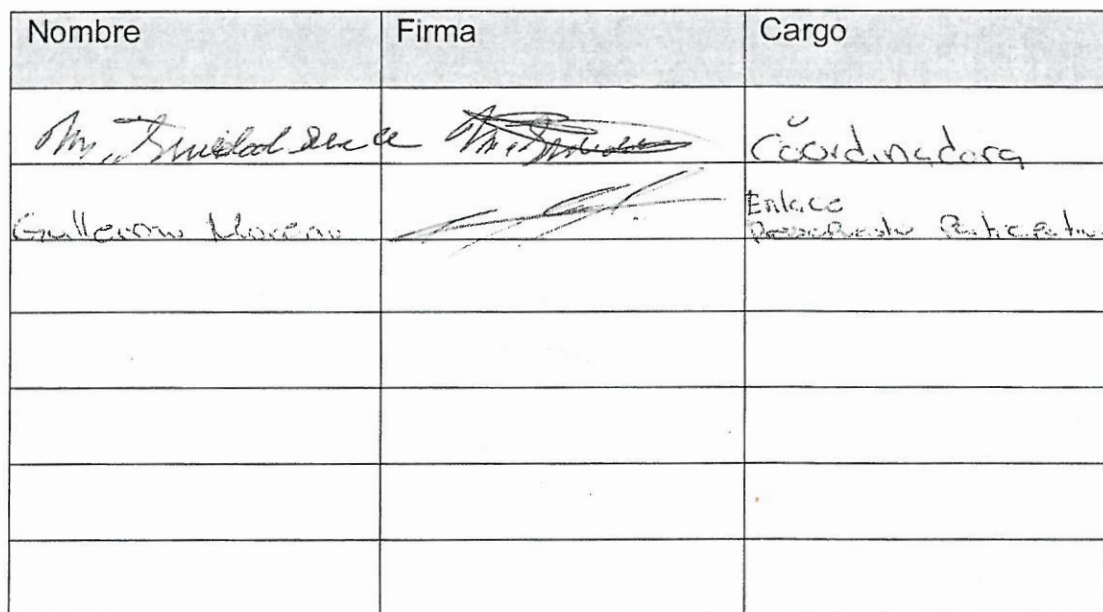 Nombre Firma Cargo
Ma. Trinidad Coordinadora
Guillermo Moreno Enlace
Presupuesto Participativo